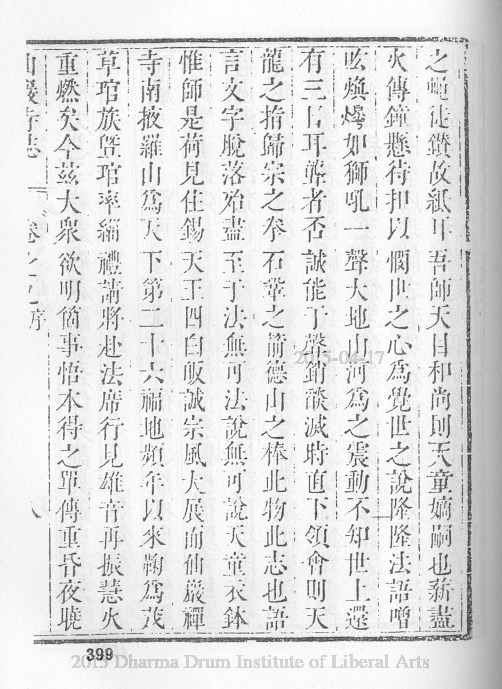 之蠅徒鑽故紙耳吾師天目和尚則天童嫡嗣也薪盡
火傳鐘懸待扣以憫世之心為覺世之說隆隆法語噌
吰煥爍如獅吼一聲大地山河為之震動不知世上還
有三日耳聾者否誠能于聲銷談滅時直下領會則天
龍之指歸宗之拳石鞏之箭德山之棒此物此志也語
言文字脫落殆盡至于法無可法說無可說天童衣鉢
惟師是荷見住錫天王四白皈誠宗風大展而仙巖禪
寺南掖羅山為天下第二十六福地頻年以來鞠為茂
草琯族暨琯率緇禮請將赴法席行見雄音再振慧火
重燃矣今茲大衆欲明箇事悟本得之單傳重昏夜曉
仙巖寺志 卷之 序 八
399
2015-04-17
2015 Dharma Drum Institute of Liberal Arts